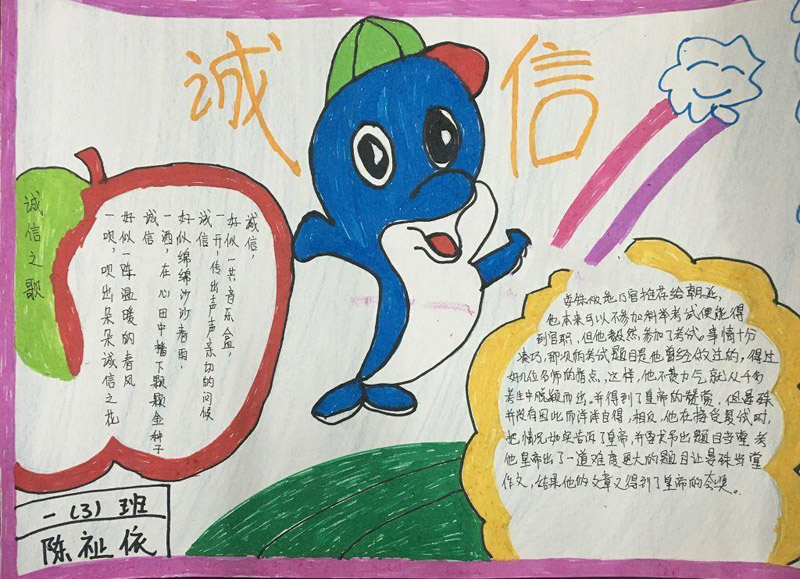 诚信
诚信之歌
诚信,
好似一共音乐盒,
一开,传出声声亲切的问候
诚信
好似绵绵沙沙春雨,
一洒,在心田中播下颗颗金种子
诚信
好似一阵温暖的春风
一呗,呗出朵朵诚信之花
晏殊被地方官推荐给朝廷,
他本来可以不参加科举考试便能得
到官职,但他毅然参加了考试。事情十分
凑巧,那次的考试题目是他曾经做过的,得过
好几位名师的指点,这样,他不费力气就从千多
考生中脱颖而出,并得到了皇帝的赞赏。但晏殊
并没有因此而洋洋自得,相反,他在接受复试时,
把情况如实告诉了皇帝,并要求另出题目当堂考
他皇帝出了一道难度更大的题目让晏殊当堂
作文,结果他的文章又得到了皇帝的夸奖。
一(3)班
陈祉依